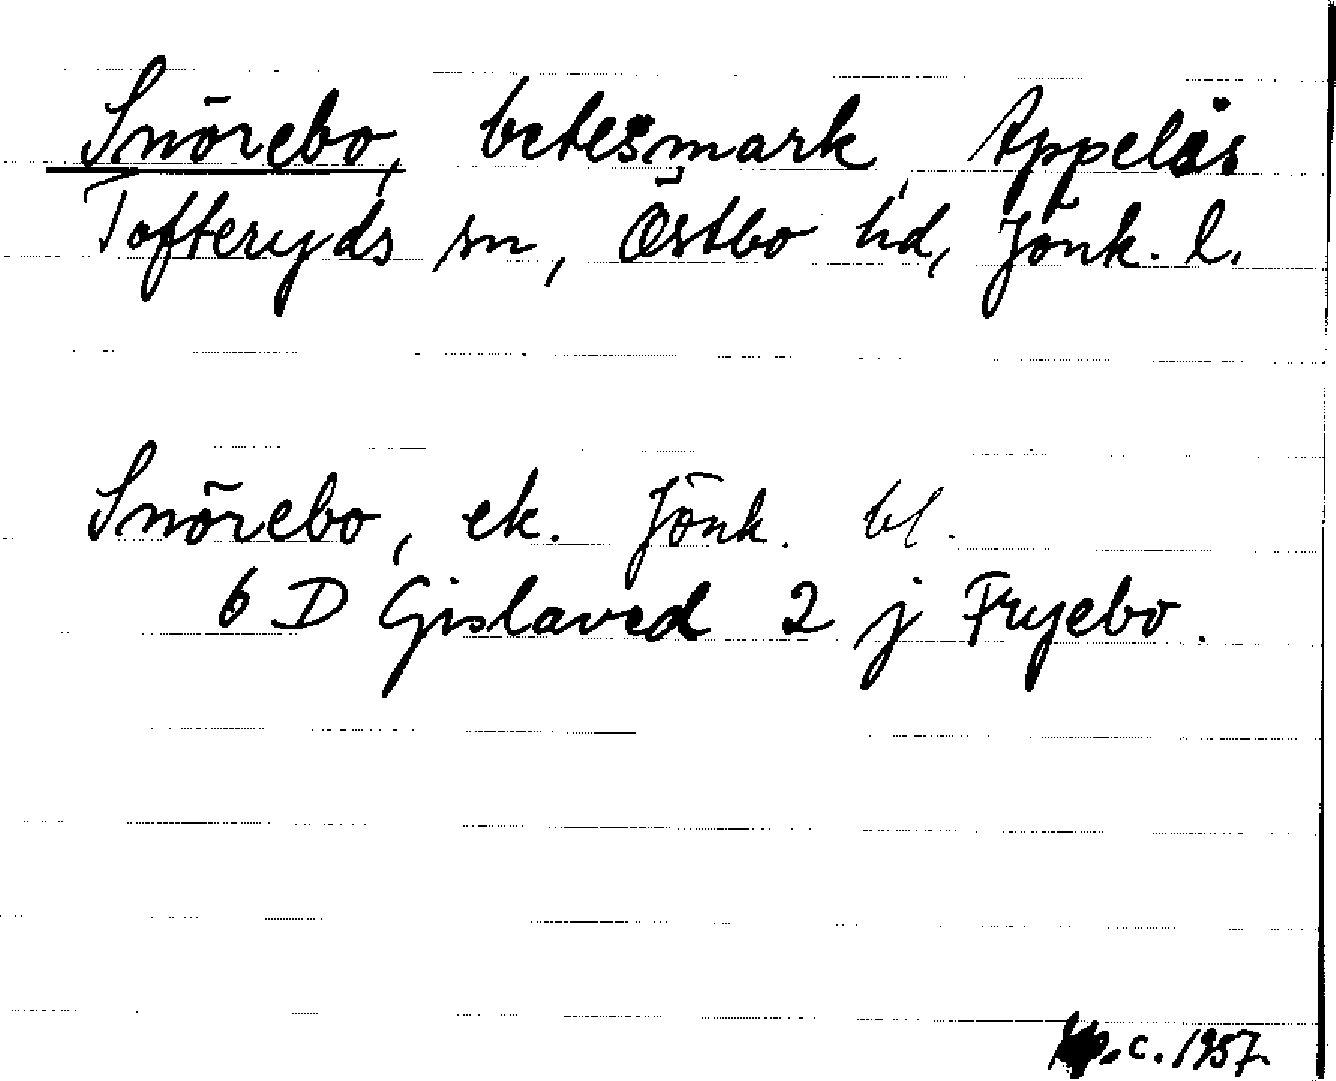 Snörebo, betesmark, Appelås
Tofteryds sn, Östbo hd, Jönk. l.
Snörebo, ek. Jönk. bl.
6 D Gislaved 2 j Fryebo.
c. 1957